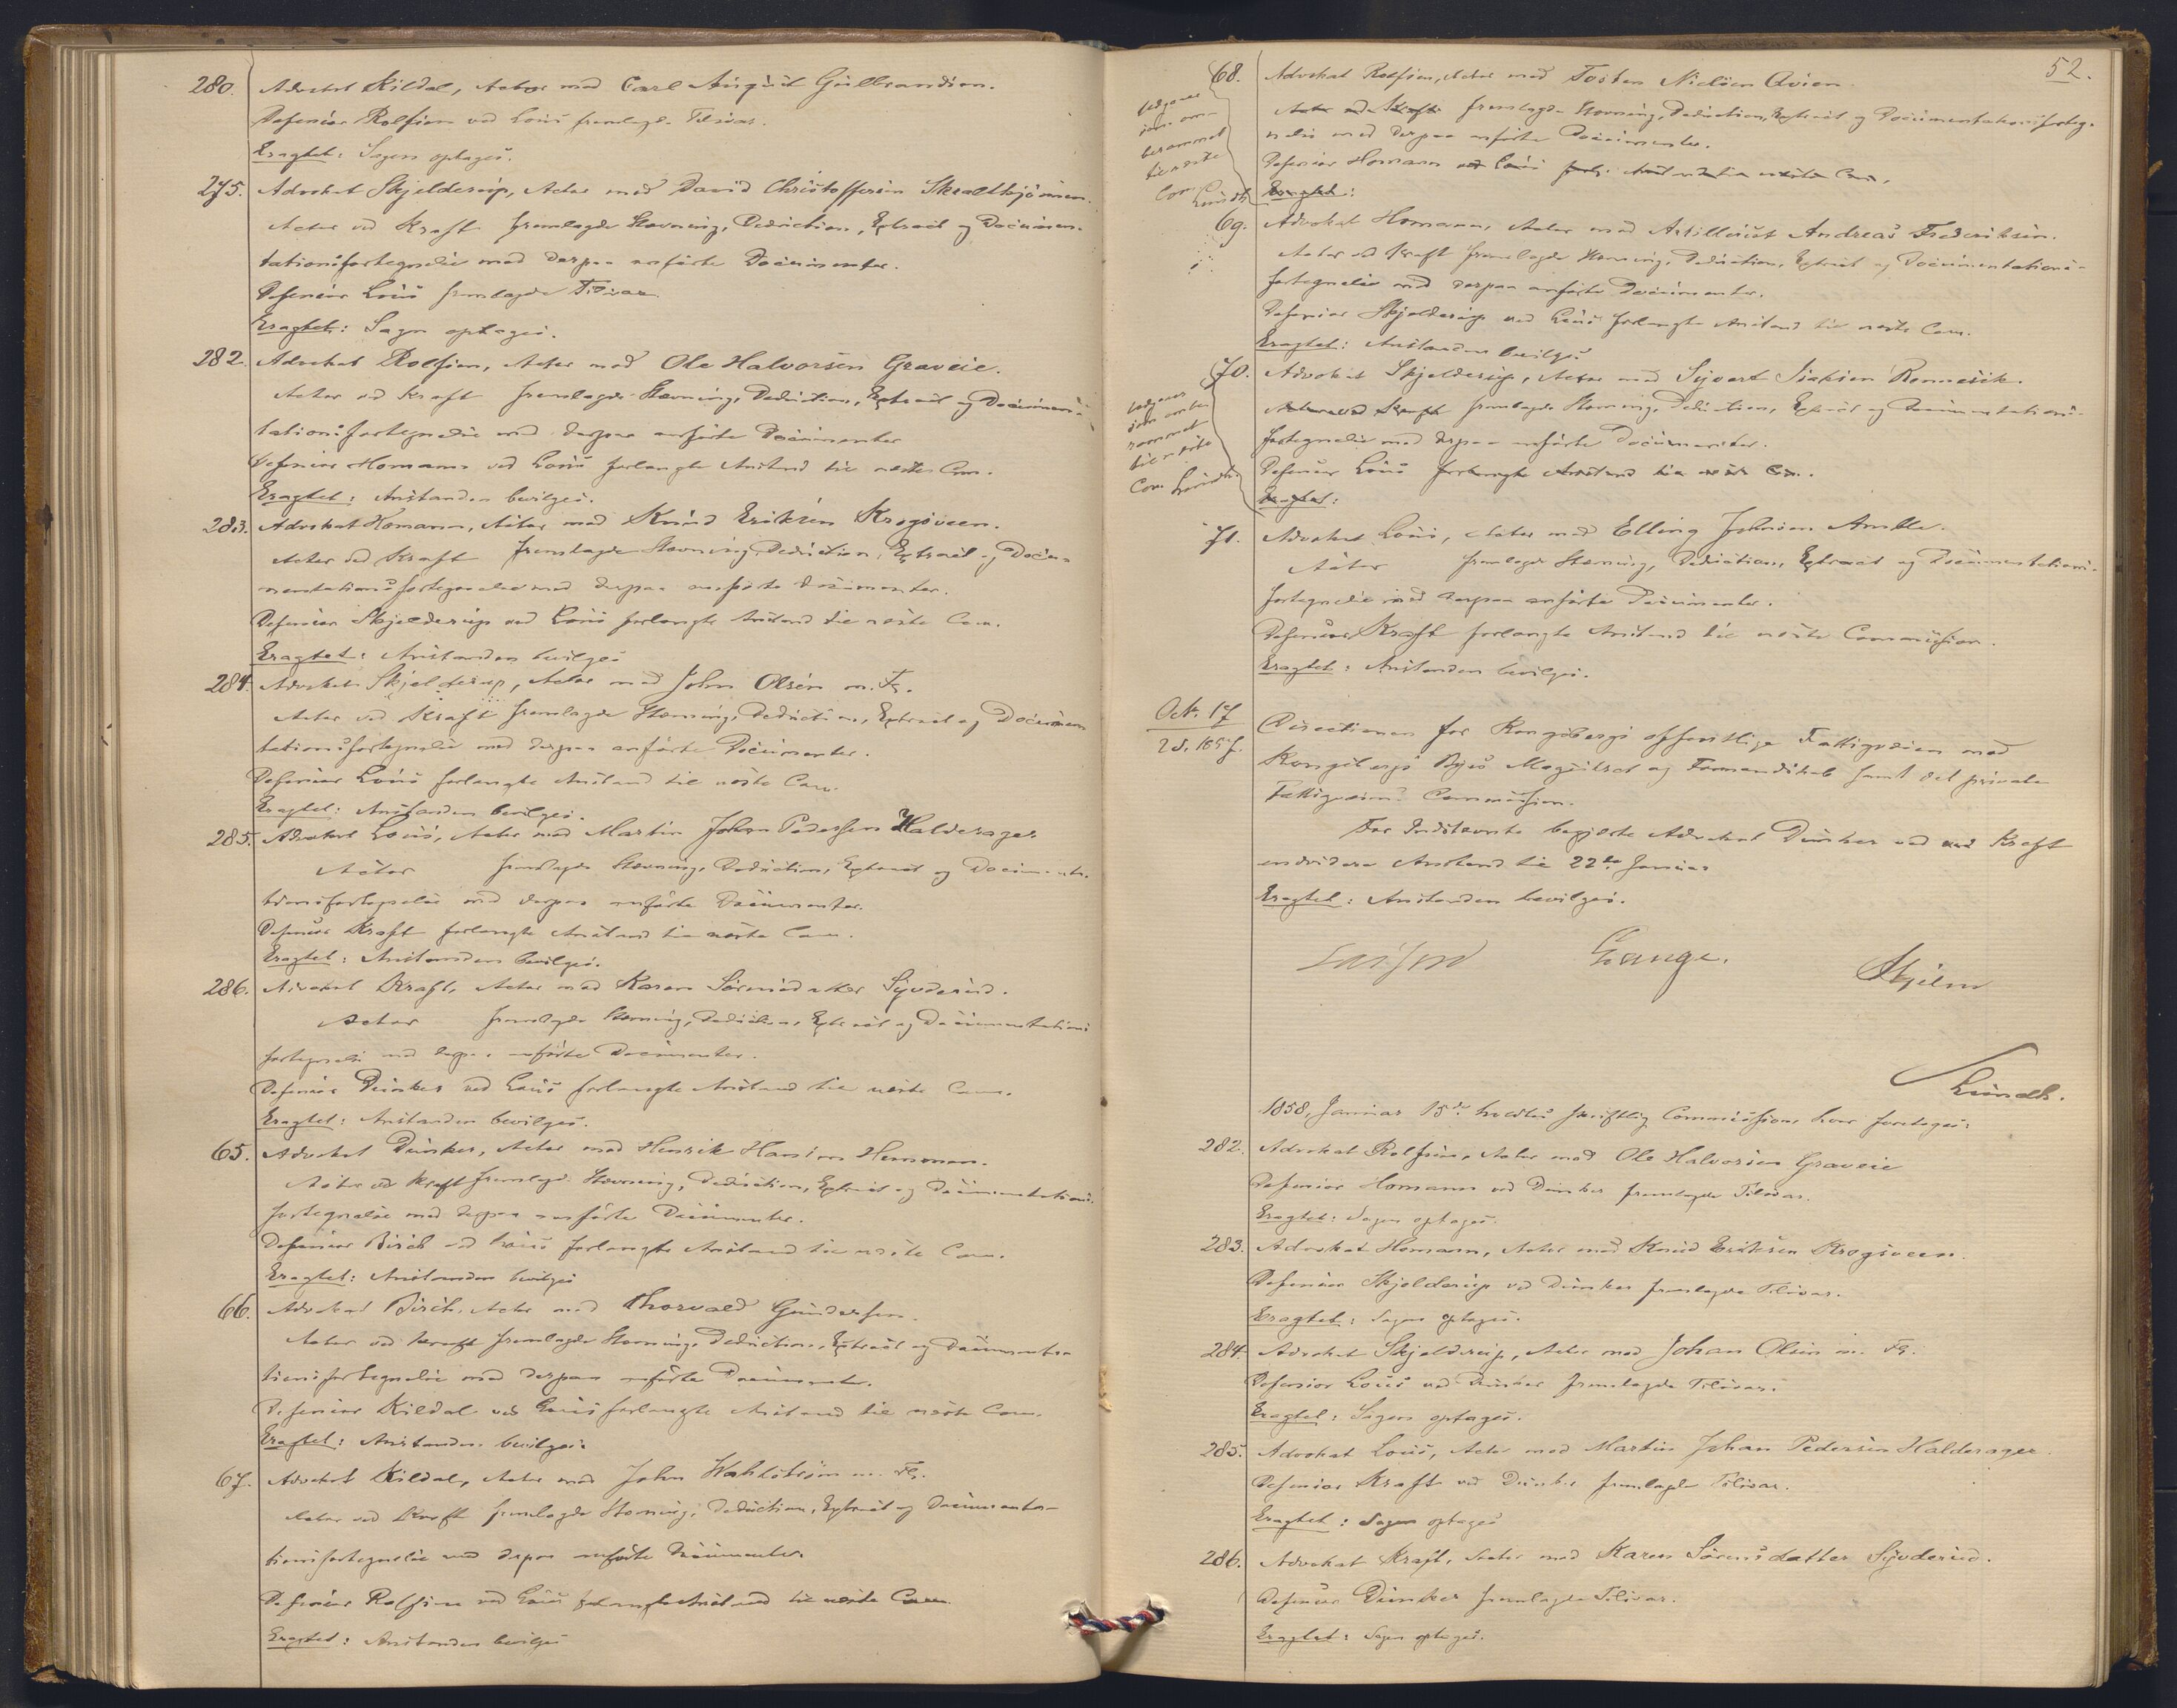 280. Advokat Kildal, Actor mod Carl August Gulbrandsen.
Defensor Rolfsen ved Louis fremlagde Tilsvar.
Eragtet: Sagen optages.
275. Advokat Skjelderup, Actor mod David Christoffersen
Actor ved Kraft fremlagde Stævning, Deduction, Extract og Documen-
tationsfortegnelse med derpaa anførte Documenter.
Defensor Louis fremlagde Tilsvar.
Eragtet: Sagen optages.
282. Advokat Rolfsen, Actor mod Ole Halvorsen Graveie.
Actor ved Kraft fremlagde Stævning, Deduction, Extract og Documen-
tationsfortegnelse med derpaa anførte Documenter
Defensor Homann ved Louis forlangte Anstand til næste Com.
Eragtet: Anstanden bevilges.
283. Advokat Homann, Actor mod Knud Eriksen Krogsveen.
Actor ved Kraft fremlagde Stævning, Deduction, Extract og Docu-
mentationsfortegnelse med derpaa anførte Documenter.
Defensor Skjelderup ved Louis forlangte Anstand til næste Com.
Eragtet: Anstanden bevilges
284. Advokat Skjelderup, Actor mod John Olsen m. Fl.
Actor ved Kraft fremlagde Stævning, Deduction, Extract og Documen
tationsfortegnelse med derpaa anførte Documenter.
Defensor Louis forlangte Anstand til næste Com.
Eragtet: Anstanden bevilges.
285. Advokat Louis, Actor mod Martin Johan Pedersen Halderager
Actor fremlagde Stævning, Deduction, Extract og Documenta-
tionsfortegnelse med derpaa anførte Documenter.
Defensor Kraft forlangte Anstand til næste Com.
Eragtet: Anstanden bevilges.
286. Advokat Kraft, Actor mod Karen Sørensdatter Syvderud.
Actor fremlagde Stævning, Deduction, Extract og Documentations
fortegnelse med derpaa anførte Documenter.
Defensor Dunker ved Louis forlangte Anstand til næste Com.
Eragtet: Anstanden bevilges.
65. Advokat Dunker, Actor mod Henrik Hansen
Actor ved Kraft fremlagde Stævning, Deduction, Extract og Documentations
fortegnelse med derpaa anførte Documenter.
Defensor Birch ved Louis forlangte Anstand til næste Com.
Eragtet: Anstanden bevilges
66. Advokat Birch, Actor mod Thorvald Gundersen.
Actor ved Kraft fremlagde Stævning, Deduction, Extract og Documenta-
tionsfortegnelse med derpaa anførte Documenter.
Defensor Kildal ved Louis forlangte Anstand til næste Com.
Eragtet: Anstanden bevilges.
67. Advokat Kildal, Actor mod John Wahlstrøm m. Fl.
Actor ved Kraft fremlagde Stævning, Deduction, Extract og Documenta-
tionsfortegnelse med derpaa anførte Documenter.
Defensor Rolfsen ved Louis forlangte Anstand til næste Com.
Eragtet: Anstanden bevilges
52.
68. Advokat Rolfsen, Actor mod Tosten Nielsen
Actor ved Kraft fremlagde Stævning, Deduction, Extract og Documentationsforteg-
nelse med derpaa anførte Documenter.
Defensor Homann ved Louis forl. Anstand til næste Com.
Eragtet:
udgaaer
som om-
berammet
til næste
Com. Lundh
69. Advokat Homann, Actor mod Artillerist Andreas Frederiksen.
Actor ved Kraft fremlagde Stævning, Deduction, Extract og Documentations-
fortegnelse med derpaa anførte Documenter.
Defensor Skjelderup ved Louis forlangte Anstand til næste Com.
Eragtet: Anstanden bevilges
70. Advokat Skjelderup, Actor mod Syvert
Actor ved Kraft fremlagde Stævning, Deduction, Extract og Documentations-
fortegnelse med derpaa anførte Documenter.
Defensor Louis forlangte Anstand til næste Com.
Eragtet:
udgaaer
som ombe
rammet
til næste
Com. Lundh
71. Advokat Louis, Actor mod Elling Johnsen Amble.
Actor fremlagde Stævning, Deduction, Extract og Documentations-
fortegnelse med derpaa anførte Documenter.
Defensor Kraft forlangte Anstand til næste Commission.
Eragtet: Anstanden bevilges.
Oct. 17
28. 1857.
Directionen for Kongsbergs offentlige Fattigvæsen mod
Kongsbergs Byes Magistrat og Formandskab samt det private
Fattigvæsens Commission.
For Indstevnte begjerte Advokat Dunker ved Kraft
endvidere Anstand til 22de Januar
Eragtet: Anstanden bevilges.
Lasson Hjelm
Lundh.
1858, Januar 15de holdtes skriftlig Commission, hvor foretoges:
282. Advokat Rolfsen, Actor mod Ole Halvorsen Graveie
Defensor Homann ved Dunker fremlagde Tilsvar.
Eragtet: Sagen optages.
283. Advokat Homann, Actor mod Knud Eriksen Krogsveen.
Defensor Skjelderup ved Dunker fremlagde Tilsvar.
Eragtet: Sagen optages.
284. Advokat Skjelderup, Actor mod Johan Olsen m. Fl.
Defensor Louis ved Dunker fremlagde Tilsvar.
Eragtet: Sagen optages.
285. Advokat Louis, Actor mod Martin Johan Pedersen Halderager.
Defensor Kraft ved Dunker fremlagde Tilsvar.
Eragtet: Sagen optages
286. Advokat Kraft, Actor mod Karen Sørensdatter Syvderud.
Defensor Dunker fremlagde Tilsvar.
Eragtet: Sagen optages.